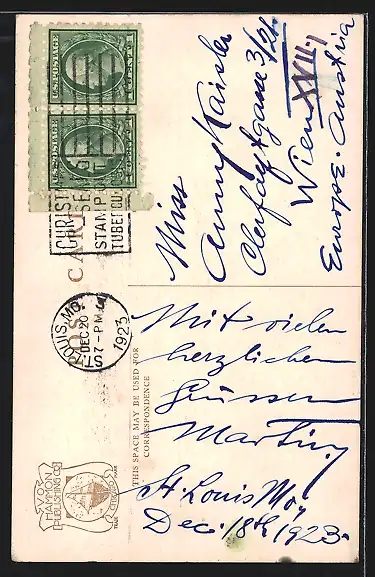 U.S. POSTAGE
1 CENT 1
U.S. POSTAGE
1 CENT 1
CHRIST
SE
STAMP
TUBERCU
ST. LOUIS, MO.
DEC 20
7-PM
1923
Miss
Anny Kaisler
Clerfaytgasse 3/21
Wien XVII.
Europe. Austria
THIS SPACE MAY BE USED FOR
CORRESPONDENCE
Mit vielen
herzlichen
Grüssen
Martin
St. Louis Mo.
Dec. 18th 1923.
V.O.
HAMMON
PUBLISHING CO.
TRADE MARK